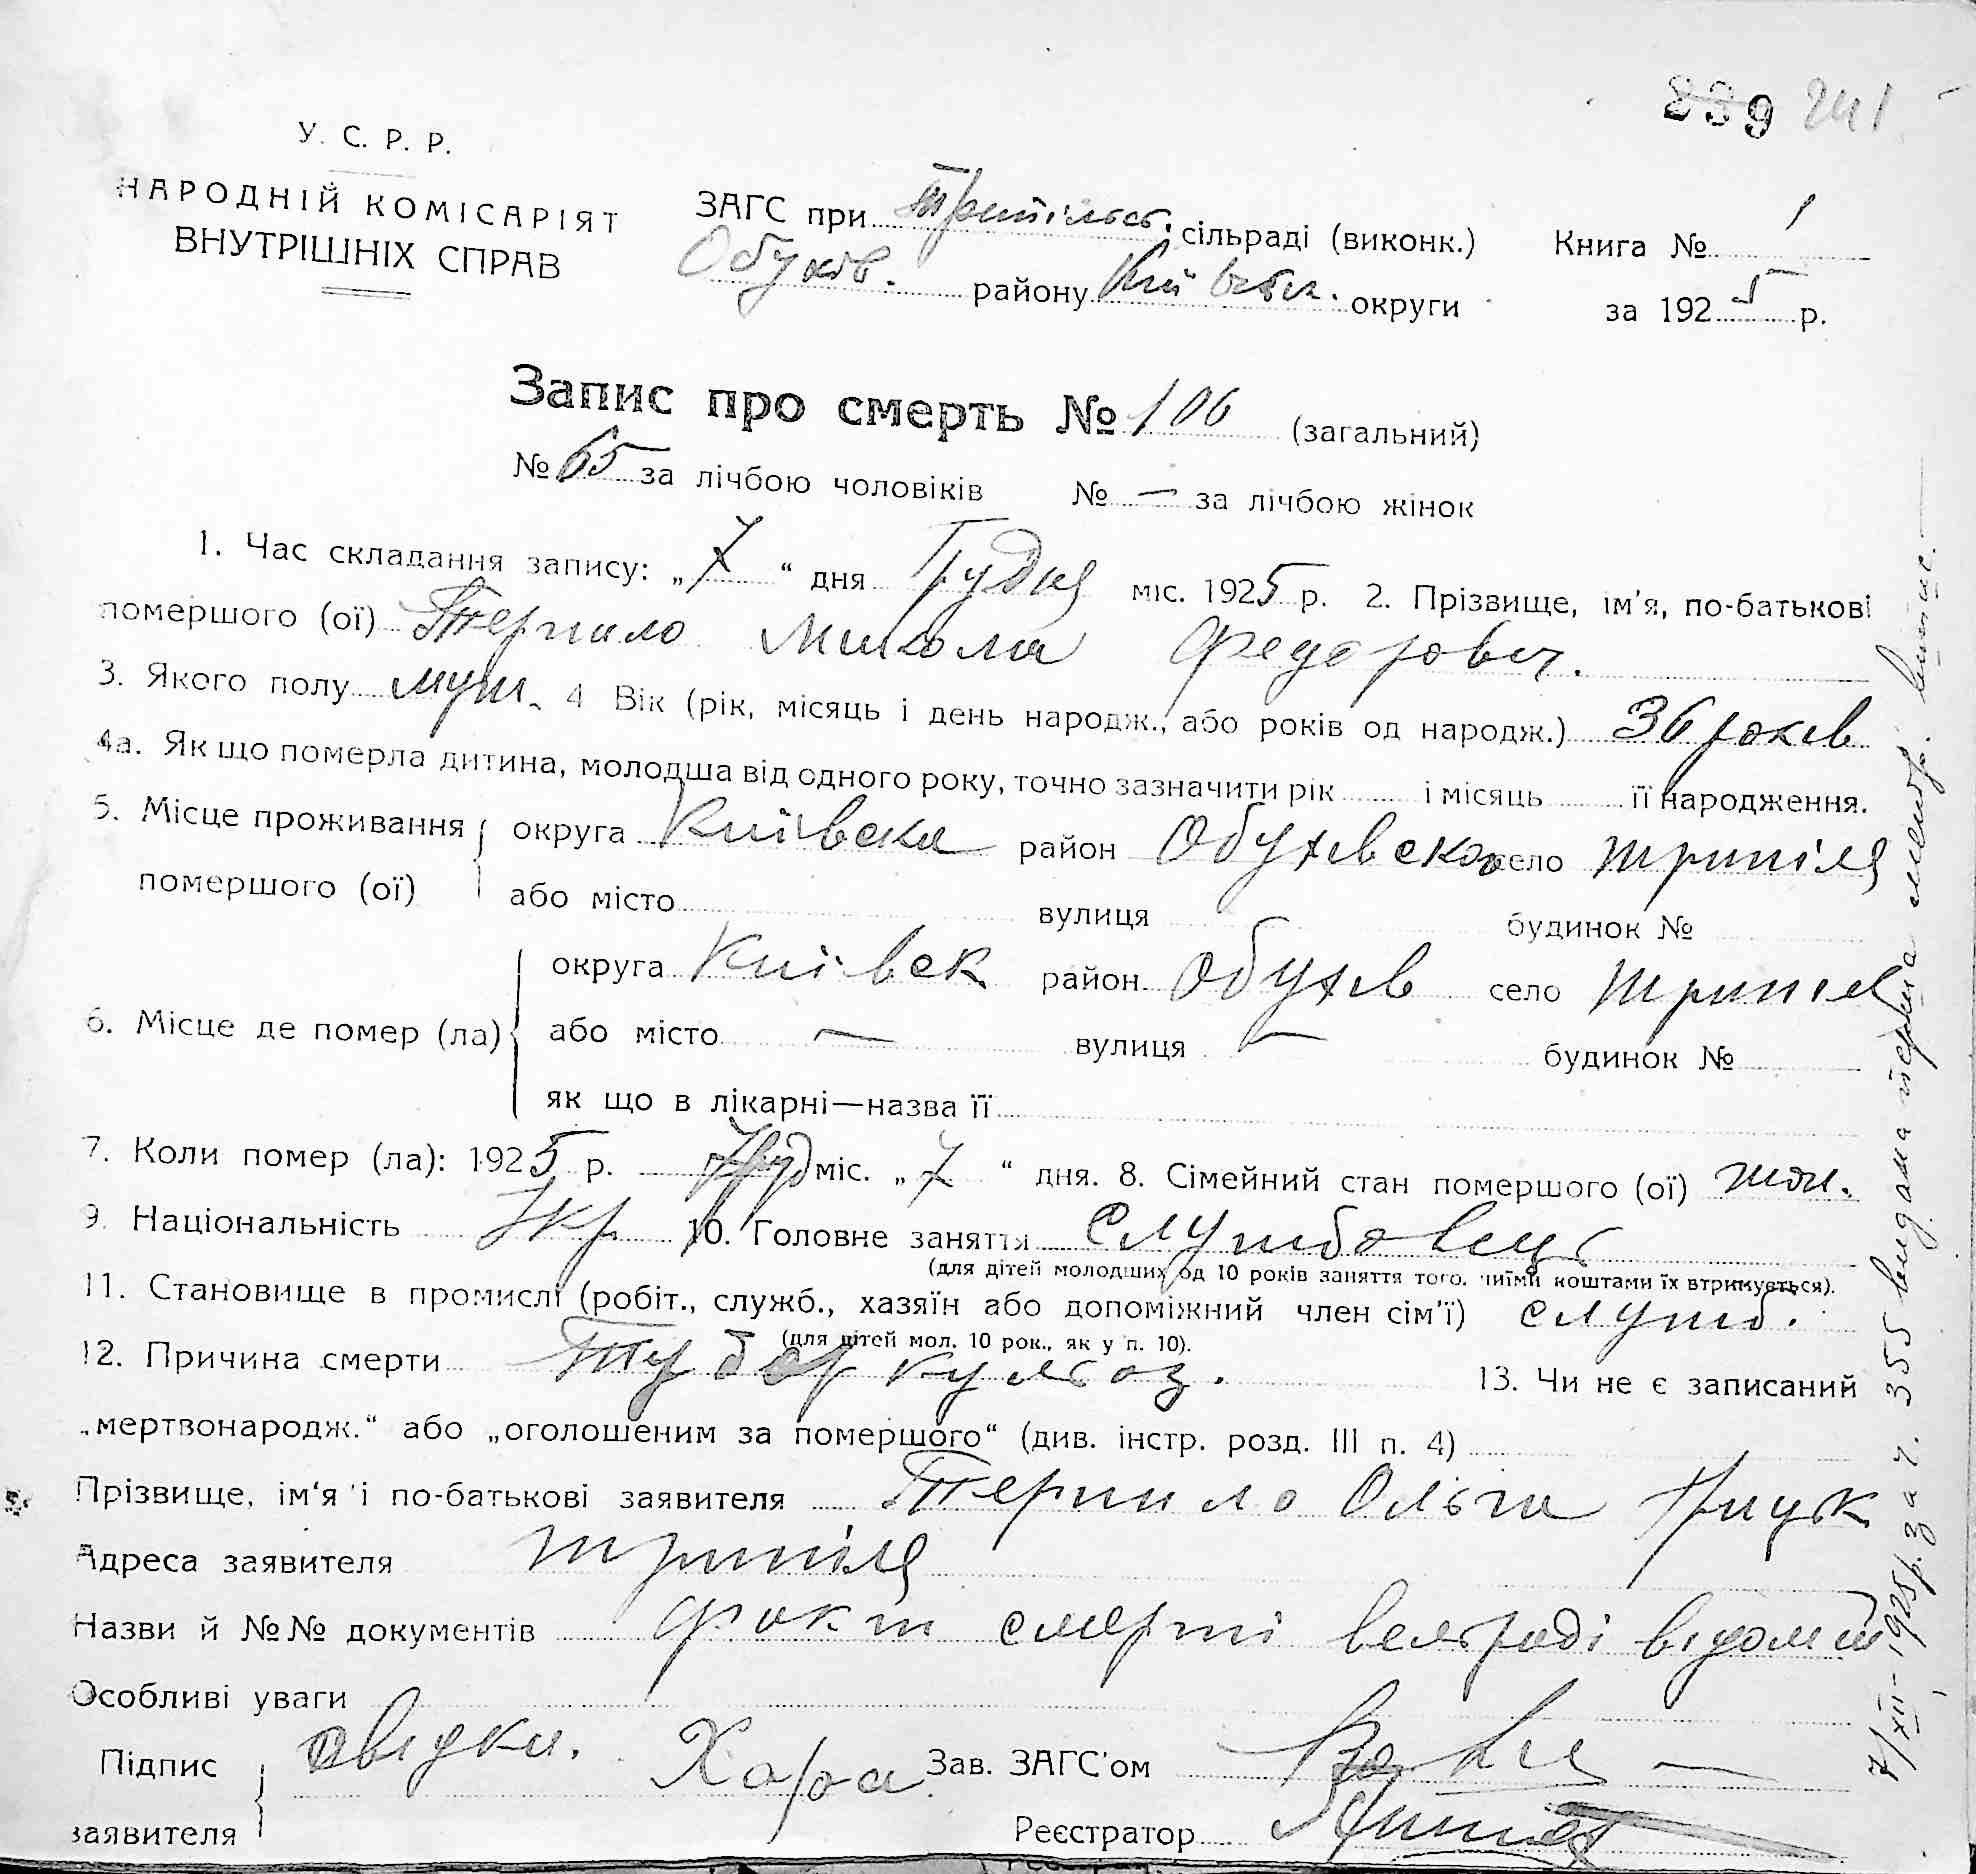 239 241
У. С. Р. Р.
НАРОДНІЙ КОМІСАРІЯТ
ВНУТРІШНІХ СПРАВ
ЗАГС при Трипільськ. сільраді (виконк.) Книга № 1
Обухів. району Київськ. округи за 1925 р.
Запис про смерть № 106 (загальний)
№ 65 за лічбою чоловіків № — за лічбою жінок
1. Час складання запису: „7“ дня Грудня міс. 1925 р. 2. Прізвище, ім'я, по-батькові
помершого (ої) Терпило Микола Федорович.
3. Якого полу муж. 4 Вік (рік, місяць і день народж., або років од народж.) 36 років
4а. Як що померла дитина, молодша від одного року, точно зазначити рік і місяць її народження.
5. Місце проживання округа Київська район Обухівськ село Трипілля
помершого (ої) або місто вулиця будинок №
округа Київськ район Обухів село Трипіл
6. Місце де помер (ла) або місто — вулиця — будинок №
як що в лікарні—назва її
7. Коли помер (ла): 1925 р. Груд міс. „7“ дня. 8. Сімейний стан помершого (ої) жон.
9. Національність Укр. 10. Головне заняття Службовець
(для дітей молодших од 10 років заняття того. чиїми коштами їх втримується).
11. Становище в промислі (робіт., служб., хазяїн або допоміжний член сім'ї) служб.
(для дітей мол. 10 рок., як у п. 10).
12. Причина смерти Туберкульоз. 13. Чи не є записаний
„мертвонародж.“ або „оголошеним за помершого“ (див. інстр. розд. III п. 4)
Прізвище, ім'я і по-батькові заявителя Терпило Ольга
Адреса заявителя Трипілля
Назви й №№ документів Факт смерті сельраді відомий
Особливі уваги
Підпис свідки. Хара Зав. ЗАГС'ом
заявителя Реєстратор
7/XII-1925р. за ч. 355 видана перша випис.